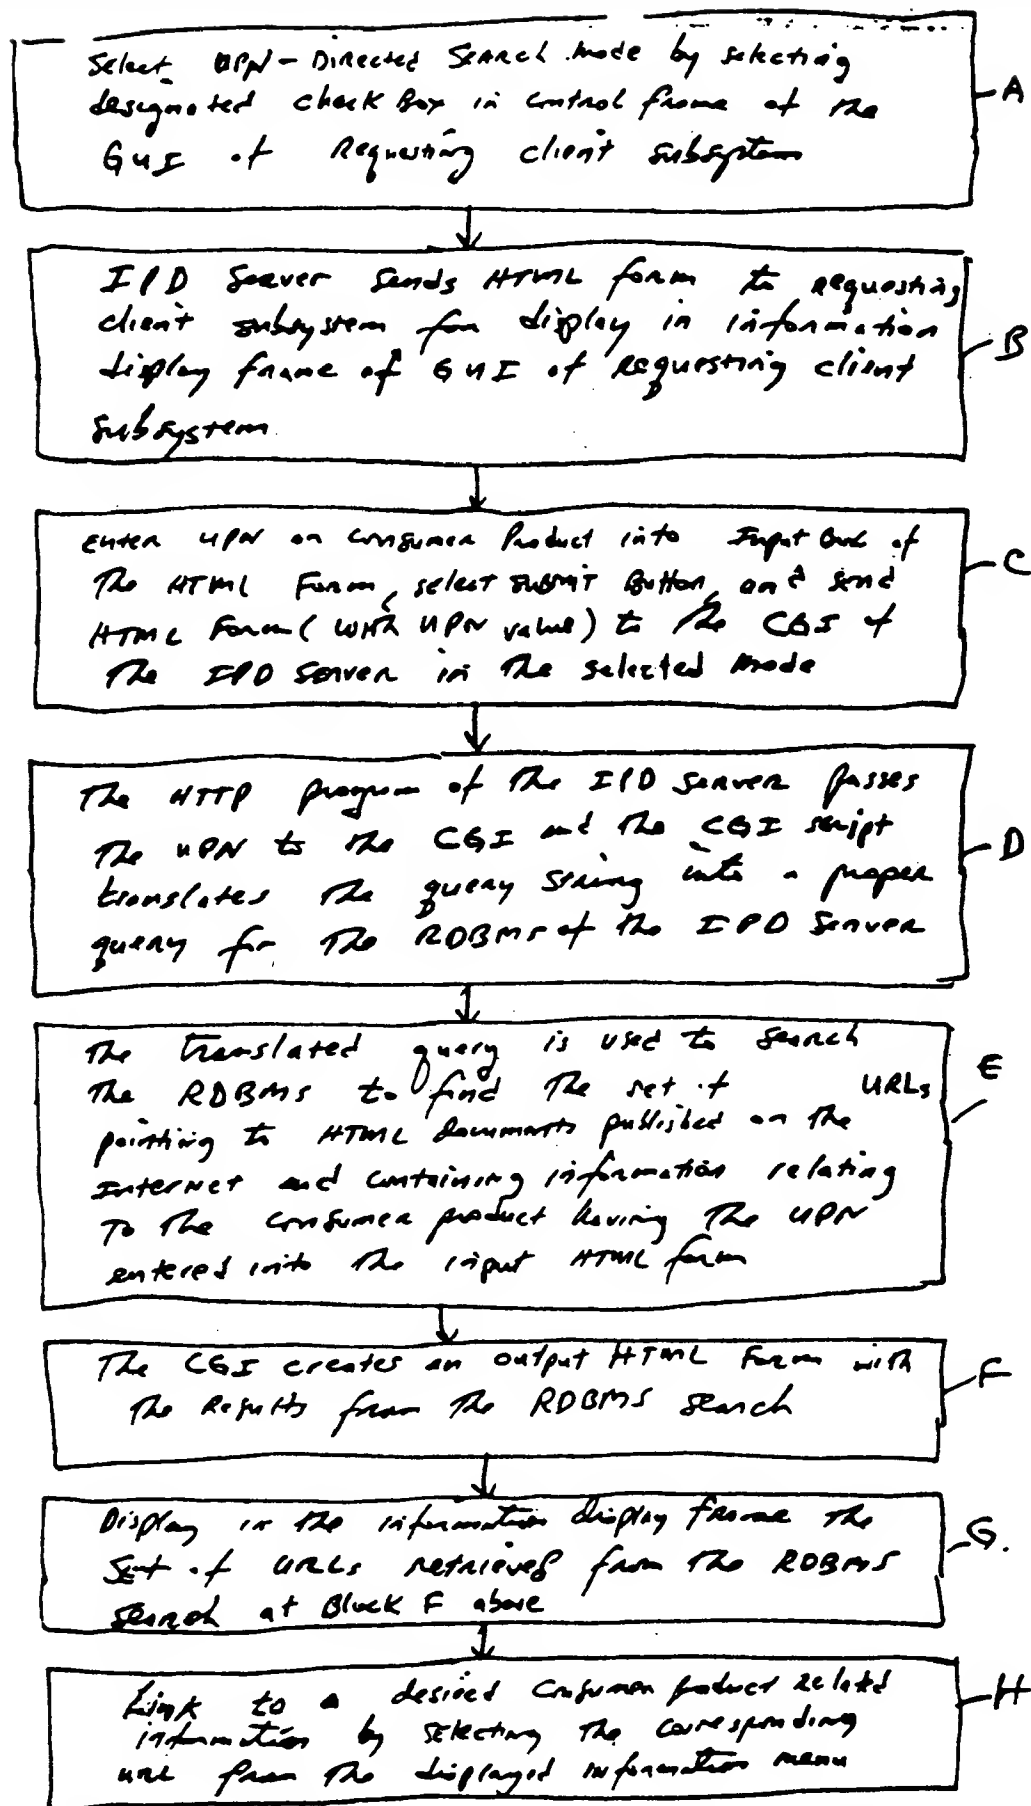 Select UPN-Directed Search mode by selecting
designated check Box in control frame of the
GUI of Requesting client subsystem
A
IPD Server sends HTML form to requesting
client subsystem for display in information
display frame of GUI of Requesting client
subsystem
B
Enter UPN on consumer Product into Input Box of
The HTML Form, select submit Button, and send
HTML Form (with UPN value) to the CGI of
The IPD Server in the selected mode
C
The HTTP program of the IPD Server passes
The UPN to the CGI and the CGI script
translates the query string into a proper
query for the RDBMS of the IPD Server
D
The translated query is used to search
The RDBMS to find the set of URLs
pointing to HTML documents published on the
Internet and containing information relating
To the consumer product having the UPN
entered into the input HTML form
E
The CGI creates an output HTML Form with
The Results from the RDBMS search
F
Display in the information display frame the
Set of URLs retrieved from the RDBMS
Search at Block F above
G.
Link to a desired consumer product Related
information by selecting the corresponding
URL from the displayed information menu
H